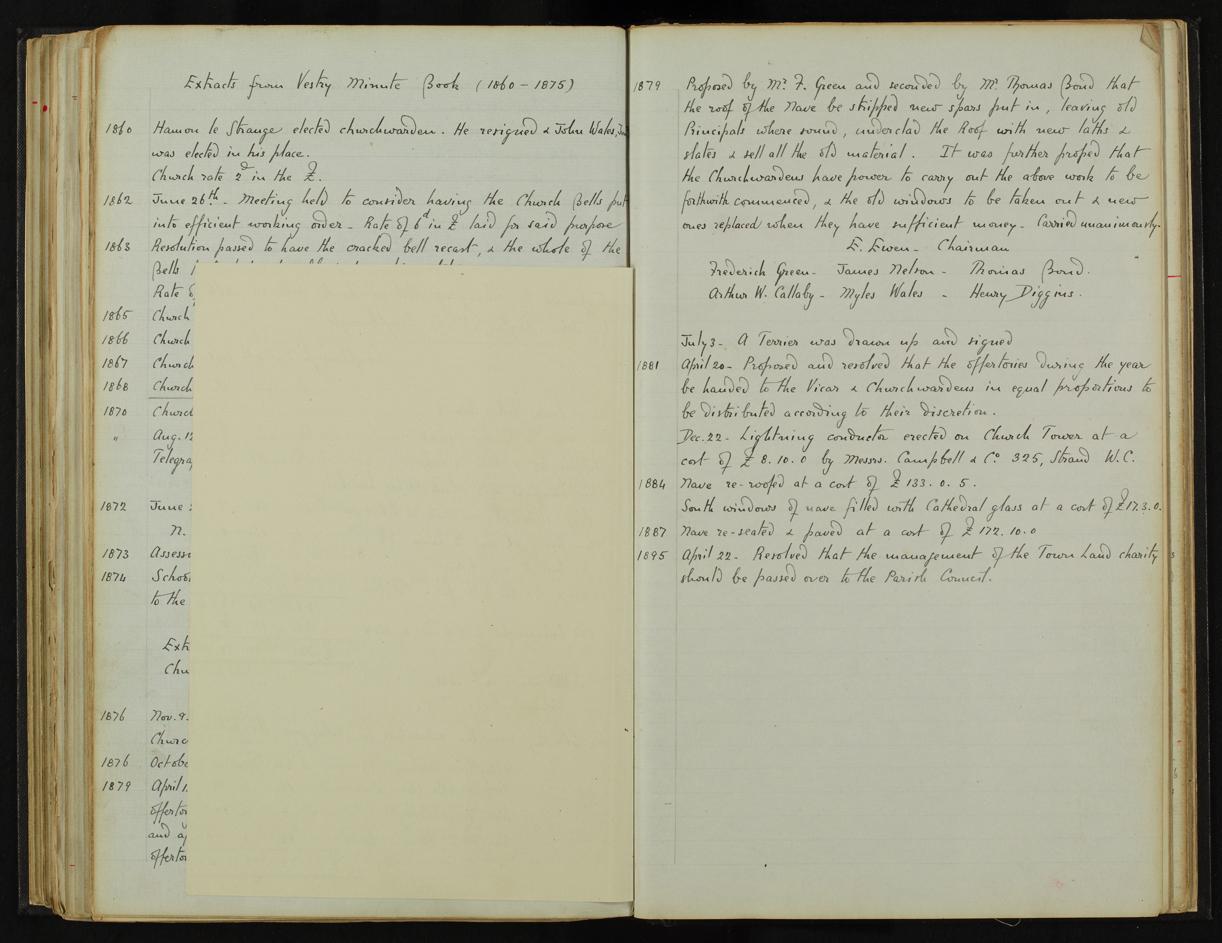 Extracts from Vestry Minute Book (1860 – 1875)
1860 Hamon le Strange elected churchwarden. He resigned & John Wales, Jun
was elected in his place.
Church rate 2d in the £.
1862 June 26th – Meeting held to consider having the Church Bells put
into efficient working order – Rate of 6d in £ laid for said purpose
1863 Resolution passed to have the cracked bell recast, & the whole of the
Bells
Rate
1865 Church
1866 Church
1867 Church
1868 Church
1870 Church
" Aug. 12
1872 June
N.
1873
1874
to the
1876 Nov. 9.
1876
1879 April 1
and
1879 Proposed by Mr F. Green and seconded by Mr Thomas Bond that
the roof of the Nave be stripped new spars put in, leaving old
Principals where sound, underclad the Roof with new laths &
slates & sell all the old material. It was further proped that
the Churchwardens have power to carry out the above work to be
forthwith commenced, & the old windows to be taken out & new
ones replaced when they have sufficient money – Carried unanimously.
E. Ewen – Chairman
Frederick Green – James Nelson – Thomas Bond.
Arthur W. Callaby – Myles Wales – Henry Diggins.
July 3 – A Terrier was drawn up and signed
1881 April 20 – Proposed and resolved that the offertories during the year
be handed to the Vicar & Churchwardens in equal proportions to
be distributed according to their discretion.
Dec. 22 – Lightning conductor erected on Church Tower at a
cost of £ 8. 10. 0 by Messrs. Campbell & Co. 325, Strand W.C.
1884 Nave re-roofed at a cost of £ 133. 0. 5.
South windows of nave filled with Cathedral glass at a cost of £17.3.0.
1887 Nave re-seated & paved at a cost of £ 172. 10. 0
1895 April 22 – Resolved that the management of the Town Land charity
should be passed over to the Parish Council.